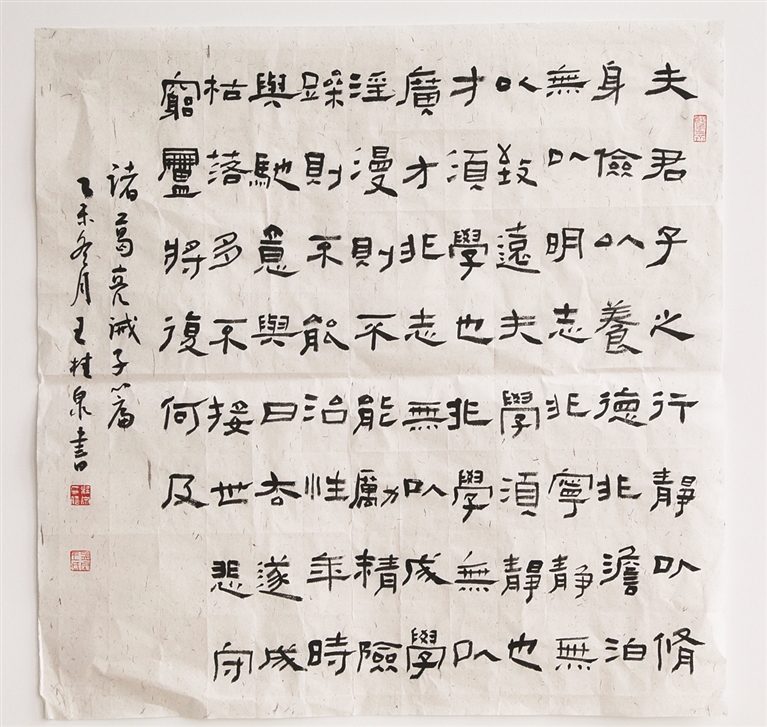 夫君子之行靜以脩
身儉以養德非澹泊
無以明志非寧靜無
以致遠夫學須靜也
才須學也非學無以
廣才非志無以成學
淫漫則不能勵精險
躁則不能治性年時
與馳意與日去遂成
枯落多不接世悲守
窮廬將復何及
諸葛亮誡子篇
乙未冬月王桂泉書